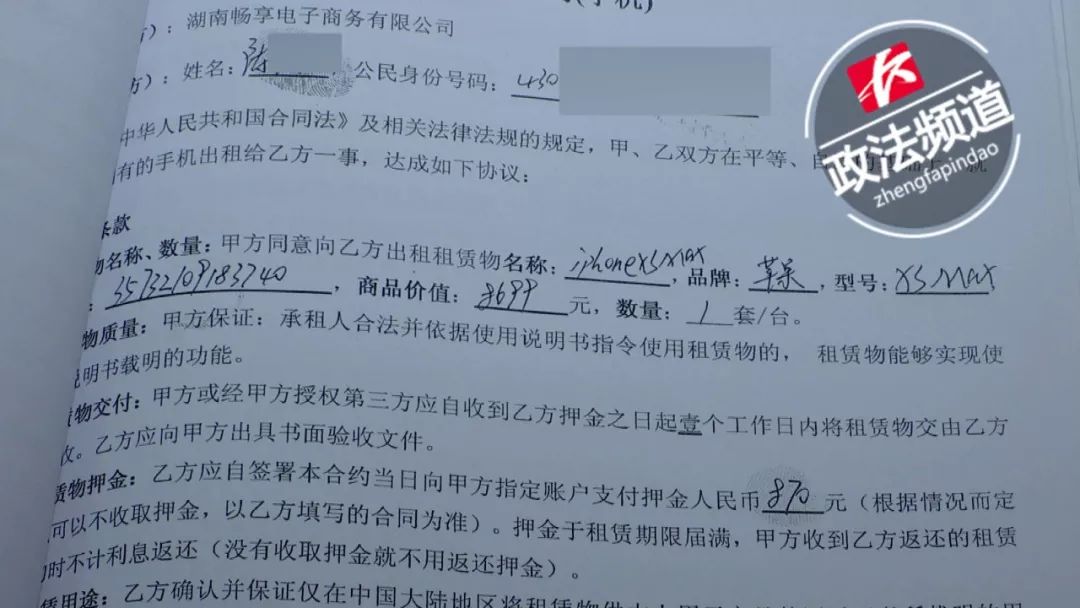 (手机)
方）：湖南畅享电子商务有限公司
方）：姓名：陈 ，公民身份号码：430
中华人民共和国合同法》及相关法律法规的规定，甲、乙双方在平等、自
有的手机出租给乙方一事，达成如下协议：
条款
物名称、数量：甲方同意向乙方出租租赁物名称：iphone XS MAX，品牌：苹果，型号：XS MAX
：35732109183740，商品价值：8699元，数量：1套/台。
物质量：甲方保证：承租人合法并依据使用说明书指令使用租赁物的，租赁物能够实现使
说明书载明的功能。
赁物交付：甲方或经甲方授权第三方应自收到乙方押金之日起壹个工作日内将租赁物交由乙方
收。乙方应向甲方出具书面验收文件。
赁物押金：乙方应自签署本合约当日向甲方指定账户支付押金人民币870元（根据情况而定
可以不收取押金，以乙方填写的合同为准）。押金于租赁期限届满，甲方收到乙方返还的租赁
时不计利息返还（没有收取押金就不用返还押金）。
赁用途：乙方确认并保证仅在中国大陆地区将租赁物供本人
政法频道
zhengfapindao